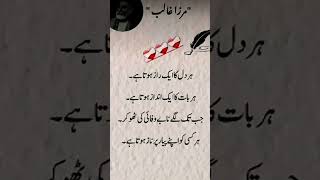 "مرزا غالب"
ہر دل کا ایک راز ہوتا ہے۔
ہر بات کا ایک انداز ہوتا ہے۔
جب تک لگے نا بے وفائی کی ٹھوکر۔
ہر کسی کو اپنے پیار پر ناز ہوتا ہے۔